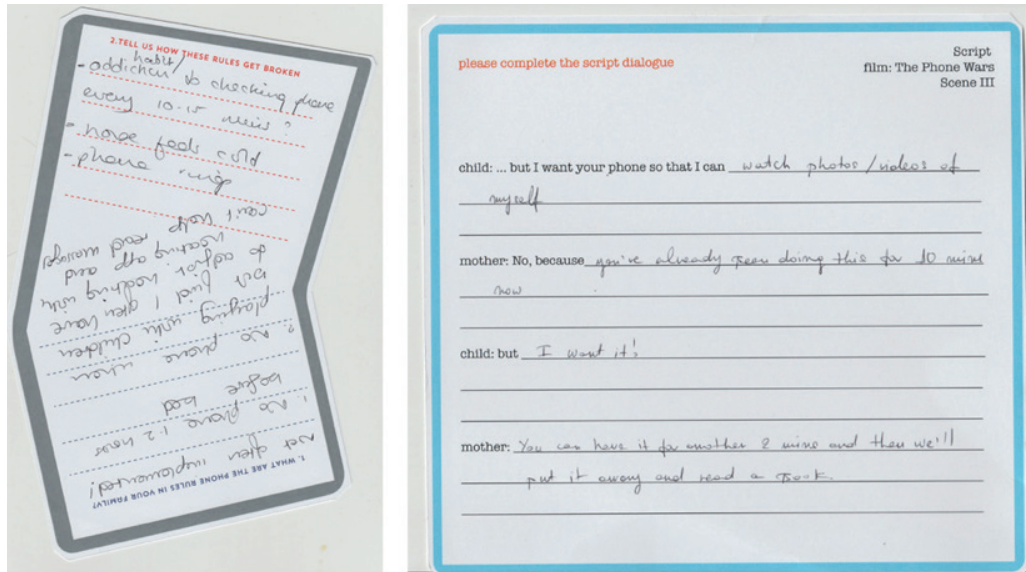 2.TELL US HOW THESE RULES GET BROKEN
habit/
- addiction to checking phone
every 10-15 mins?
- house feels cold
- phone rings
1. WHAT ARE THE PHONE RULES IN YOUR FAMILY?
not often implemented!
1. No phone 1-2 hours
before bed
2. No phone when
playing with children
but find I often have
to adjust heating with
heating app and
can't help read messages
please complete the script dialogue
Script
film: The Phone Wars
Scene III
child: ... but I want your phone so that I can watch photos/videos of
myself
mother: No, because you've already been doing this for 10 mins
now
child: but I want it!
mother: You can have it for another 2 mins and then we'll
put it away and read a book.